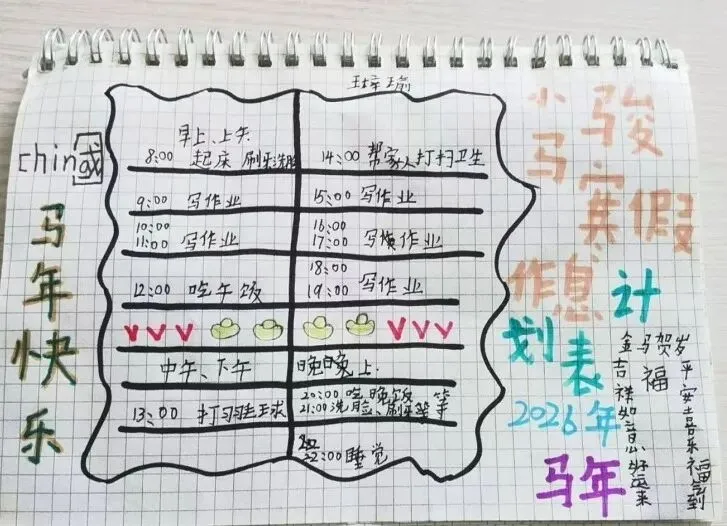 china或
马年快乐
早上、上午
8:00 起床 刷牙洗脸
9:00 写作业
10:00
11:00 写作业
12:00 吃午饭
中午、下午
13:00 打羽毛球
14:00 帮家人打扫卫生
15:00 写作业
16:00
17:00 写作业
18:00
19:00 写作业
晚晚上
20:00 吃晚饭
21:00 洗脸、刷牙等等
22:00 睡觉
小骏
马寒假
作息计
划表
2026年
马年
金马贺岁
福
吉祥如意好运来
平安喜乐福到